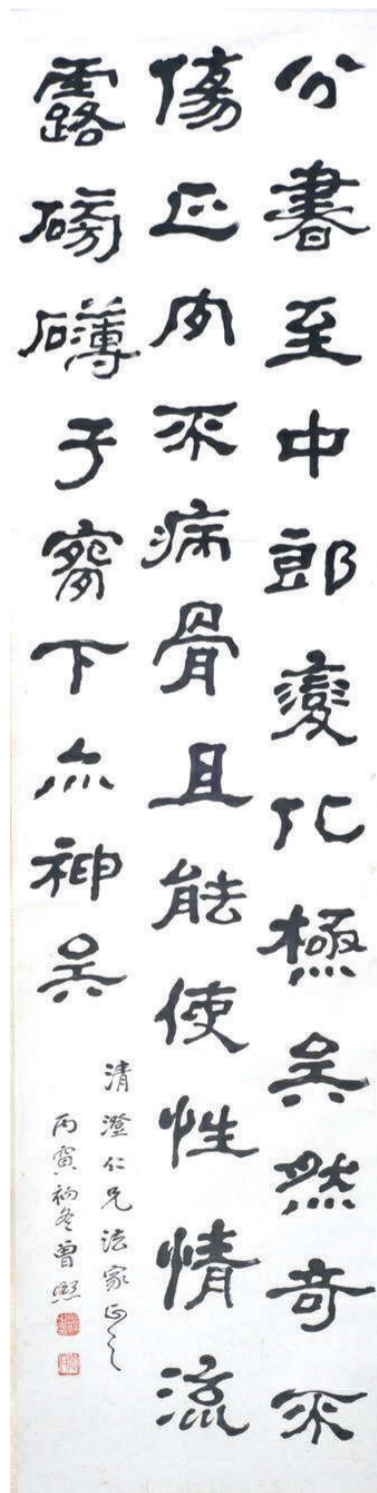 分書至中郎變化極矣然奇不
傷正肉不病骨且能使性情流
露磅礴于下亦神矣
清澄仁兄法家正之
丙寅初冬曾熙